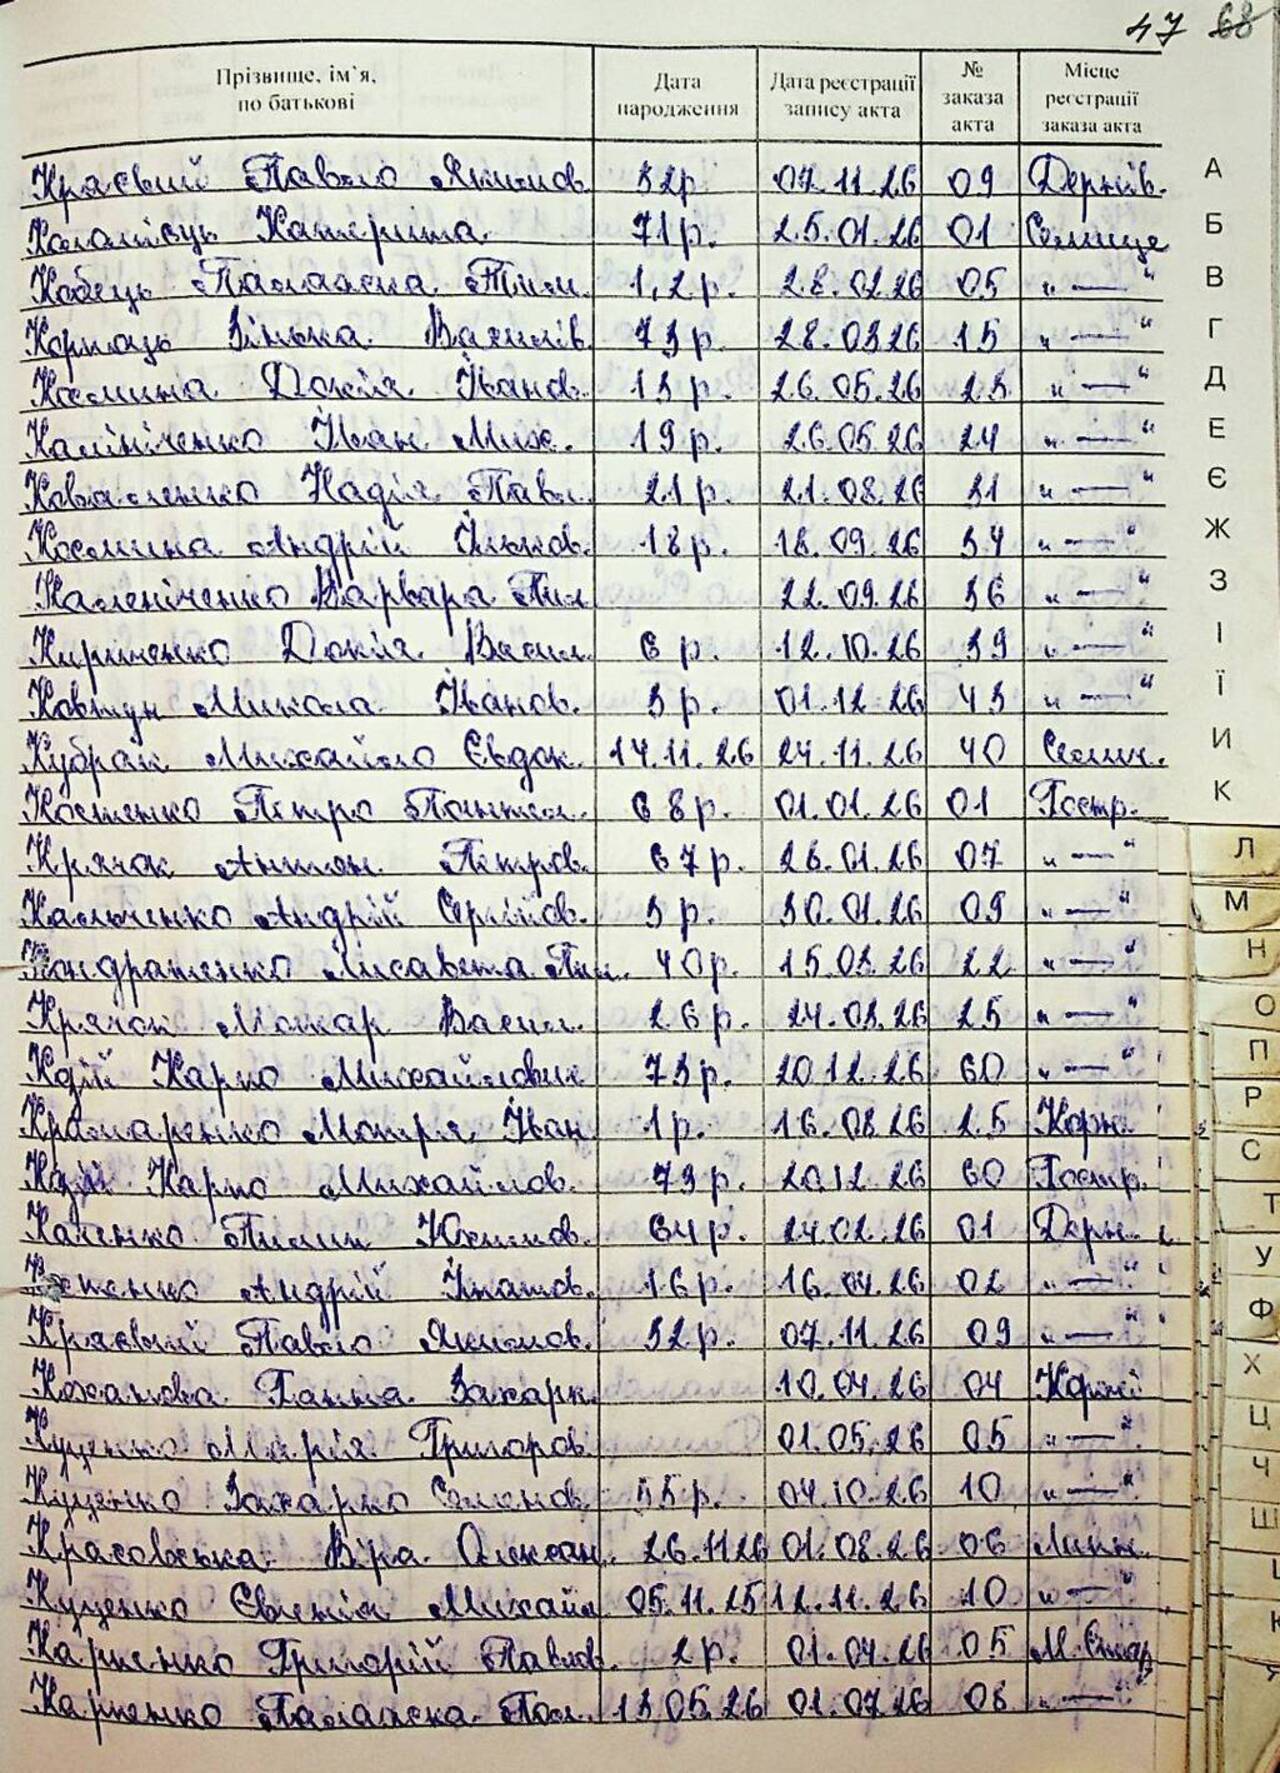 47 68
Прізвище, ім`я, по батькові Дата народження Дата реєстрації запису акта № заказа акта Місце реєстрації заказа акта
Краєвий Павло Якимов. 32р. 07.11.26 09 Дернів. А
Катерина 71р. 25.01.26 01 Селище Б
Кобець Палажка Тим. 1,2р. 28.02.26 05 „—“ В
Зінька Василів. 73р. 28.03.26 15 „—“ Г
Космина Докія Іванов. 13р. 26.05.26 23 „—“ Д
Калініченко Іван Мих. 19р. 26.05.26 24 „—“ Е
Коваленко Надія Павл. 21р. 21.08.26 31 „—“ Є
Космина Андрій 18р. 18.09.26 34 „—“ Ж
Каленіченко Варвара Пил 22.09.26 36 „—“ З
Кириченко Докія Васил. 6р. 12.10.26 39 „—“ І
Ковтун Микола Іванов. 3р. 01.12.26 43 „—“ Ї
Кубрак Михайло Євдок. 14.11.26 24.11.26 40 Селищ. И
Костенко Петро Пантел. 68р. 01.01.26 01 Гостр. К
Крячок Антон Петров. 67р. 26.01.26 07 „—“ Л
Кальченко Андрій Сергійов. 3р. 30.01.26 09 „—“ М
Кондратенко Лисавета Пил. 40р. 15.03.26 22 „—“ Н
Крячок Макар Васил. 26р. 24.03.26 25 „—“ О
Кдій Карпо Михайлович 73р. 20.12.26 60 „—“ П
Крамаренко Мотря Іван 1р. 16.08.26 25 Корн. Р
Кдій Карпо Михайлов. 73р. 20.12.26 60 Гостр. С
Каченко Пилип 64р. 24.02.26 01 Дерн. Т
Андрій Гнатов. 16р. 16.04.26 02 „—“ У
Краєвий Павло Якимов. 32р. 07.11.26 09 „—“ Ф
Коханова Ганна Захарк. 10.04.26 04 Х
Куценко Марія Григоров. 01.05.26 05 „—“ Ц
Куценко Захарко Семенов. 55р. 04.10.26 10 „—“ Ч
Красовська Віра Олексан. 26.11.26 01.08.26 06 Липн. Ш
Куценко Євгенія Михайл 05.11.25 12.11.26 10 „—“
Карпенко Григорій Павлов. 2р. 01.04.26 05
Карпенко Палажка Пол. 13.05.26 01.07.26 08 „—“ Я